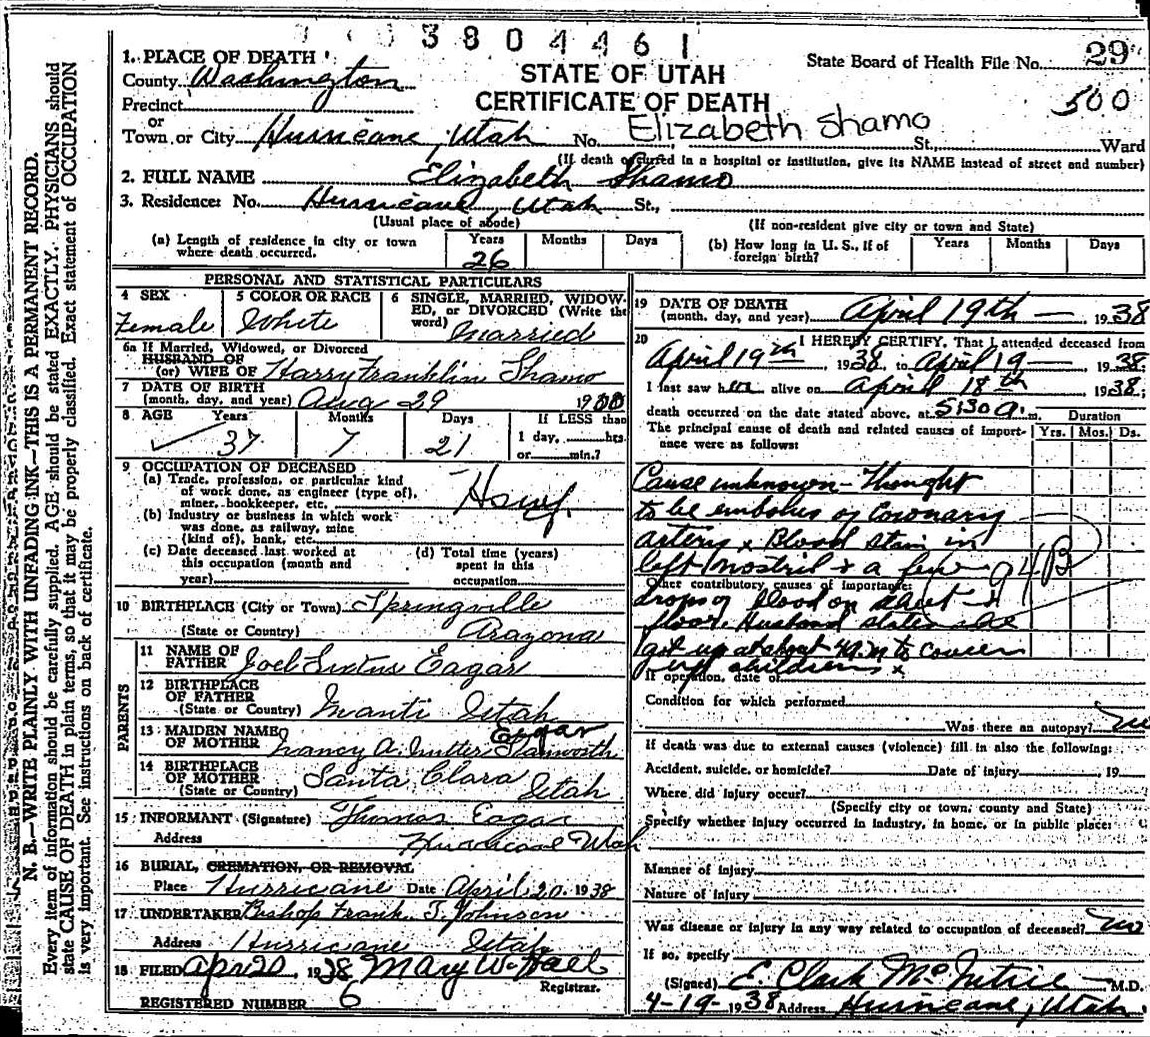 3804461
1. PLACE OF DEATH
County Washington
Precinct
or
Town or City Hurricane, Utah No. St., Ward
STATE OF UTAH
CERTIFICATE OF DEATH
State Board of Health File No. 29
500
Elizabeth Shamo
(If death occurred in a hospital or institution, give its NAME instead of street and number)
2. FULL NAME Elizabeth Shamo
3. Residence: No. Hurricane, Utah St.,
(Usual place of abode) (If non-resident give city or town and State)
(a) Length of residence in city or town where death occurred. Years 26 Months Days
(b) How long in U. S., if of foreign birth? Years Months Days
N. B.—WRITE PLAINLY WITH UNFADING INK—THIS IS A PERMANENT RECORD.
Every item of information should be carefully supplied. AGE should be stated EXACTLY. PHYSICIANS should
state CAUSE OF DEATH in plain terms, so that it may be properly classified. Exact statement of OCCUPATION
is very important. See instructions on back of certificate.
PERSONAL AND STATISTICAL PARTICULARS
4 SEX Female
5 COLOR OR RACE White
6 SINGLE, MARRIED, WIDOWED, or DIVORCED (Write the word) Married
6a If Married, Widowed, or Divorced
HUSBAND OF
(or) WIFE OF Harry Franklin Shamo
7 DATE OF BIRTH
(month, day, and year) Aug 29 1900
8 AGE Years 37 Months 7 Days 21 If LESS than
1 day, hrs.
or min.?
9 OCCUPATION OF DECEASED
(a) Trade, profession, or particular kind
of work done, as engineer (type of),
miner, bookkeeper, etc. Hswf.
(b) Industry or business in which work
was done, as railway, mine
(kind of), bank, etc.
(c) Date deceased last worked at
this occupation (month and
year)
(d) Total time (years)
spent in this
occupation
10 BIRTHPLACE (City or Town) Springville
(State or Country) Arazona
PARENTS
11 NAME OF FATHER Joel Sixtus Eagar
12 BIRTHPLACE OF FATHER
(State or Country) Manti Utah
13 MAIDEN NAME OF MOTHER Nancy A. Eagar Stanworth
14 BIRTHPLACE OF MOTHER
(State or Country) Santa Clara Utah
15 INFORMANT (Signature) Thomas Eagar
Address Hurricane Utah
16 BURIAL, CREMATION, OR REMOVAL
Place Hurricane Date April 20 1938
17 UNDERTAKER Bishop Frank T. Johnson
Address Hurricane Utah
18 FILED Apr 20, 1938 Mary W. Hall
Registrar.
REGISTERED NUMBER 6
19 DATE OF DEATH
(month, day, and year) April 19th — , 1938
20 I HEREBY CERTIFY, That I attended deceased from
April 19th, 1938, to April 19 —, 1938;
I last saw her alive on April 18th 1938;
death occurred on the date stated above, at 5:30 a. m. Duration
The principal cause of death and related causes of importance were as follows: Yrs. Mos. Ds.
Cause unknown - Thought
to be embolus of Coronary
artery x Blood stain in
left nostril & a few 94B
Other contributory causes of importance:
drops of blood on sheet &
floor. Husband states she
got up at about 4 a.m to cover
up children x
If operation, date of
Condition for which performed
Was there an autopsy? no
If death was due to external causes (violence) fill in also the following:
Accident, suicide, or homicide? Date of injury , 19
Where did injury occur?
(Specify city or town, county and State)
Specify whether injury occurred in industry, in home, or in public place:
Manner of injury
Nature of injury
Was disease or injury in any way related to occupation of deceased? no
If so, specify
(Signed) E. Clark McIntire — M.D.
4-19-1938 Address Hurricane, Utah